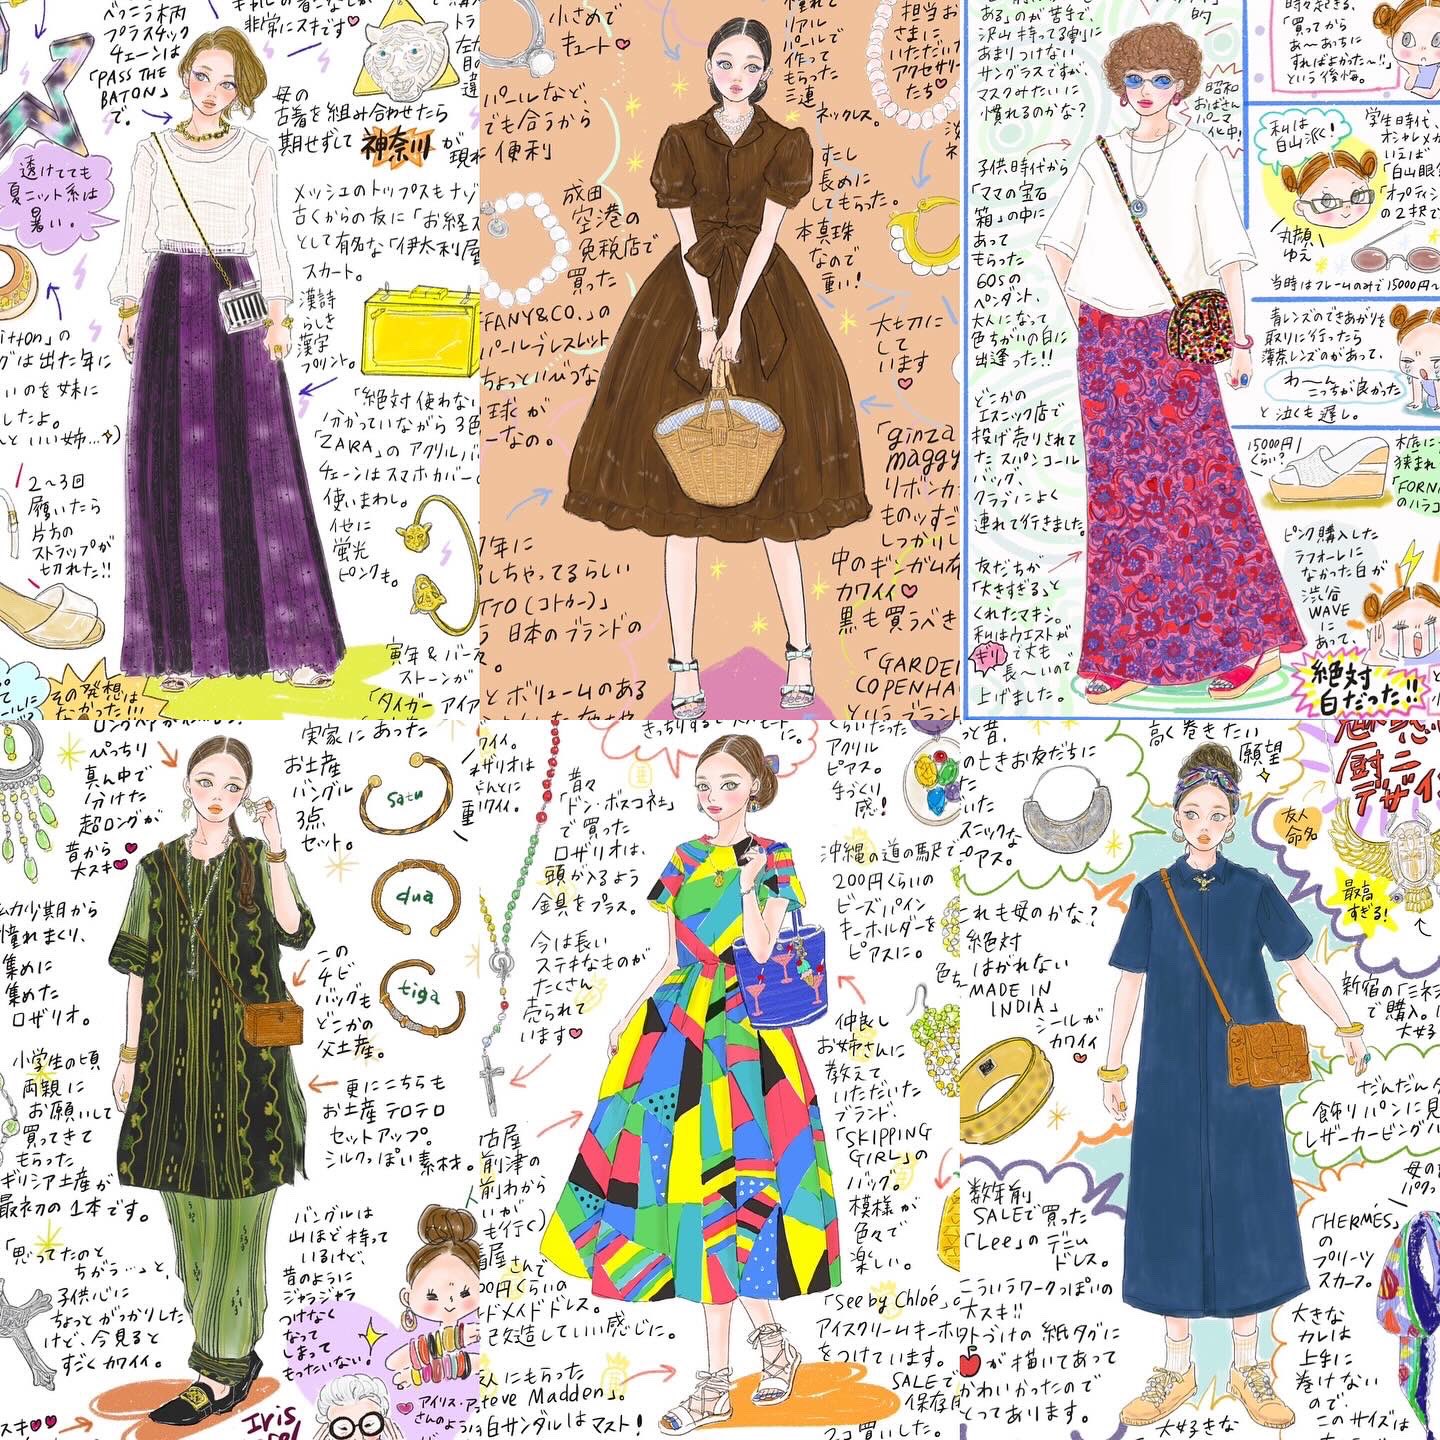 べっこう柄
プラスチック
チェーンは
「PASS THE
BATON」
で。
非常にスキです♥
母の
古着を組み合わせたら
期せずして 神奈川 が
透けてても
夏ニット系は
暑い。
メッシュのトップスもナゾ
古くからの友に「お経ス
として有名な「伊太利屋
スカート。
漢詩
らしき
漢字
プリント。
「絶対使わない
分かっていながら3色
「ZARA」のアクリルバ
チェーンはスマホカバー
使いまわし。
他に
蛍光
ピンクも。
グは出た年に
いのを妹に
したよ。
いい姉…
2〜3回
履いたら
片方の
ストラップが
切れた!!
その発想は
なかった!!!
寅年&バー
ストーンが
「タイガーアイ
小さめで
キュート♥
パールなど、
でも合うから
便利
リアル
パールで
作って
もらった
三連
ネックレス。
担当お
さまに
いただいた
アクセサリー
たち♥
すこし
長めに
してもらった。
本真珠
なので
重い!
成田
空港の
免税店で
買った
FFANY&CO.」の
パールブレスレット
ちょっといびつな
球が
ーなの。
大切に
して
います
♥
「ginza
maggy
リボンカ
ものッすご
しっかりし
中のギンガム布
カワイイ♥
黒も買うべき
年に
しちゃってるらしい
TTO(コトゥー)」
日本のブランドの
とボリュームのある
「GARDEN
COPENHA
というブラン
ある」のが苦手で、
沢山持ってる割に
あまりつけない
サングラスですが、
マスクみたいに
慣れるのかな?
昭和
おばさん
パーマ
化中!
子供時代から
「ママの宝石
箱」の中に
あって
もらった
60sの
ペンダント、
大人になって
色ちがいの白に
出逢った!!
どこかの
エスニック店で
投げ売りされて
たスパンコール
バッグ、
クラブによく
連れて行きました。
友だちが
「大きすぎる」と
くれたマキシ。
私はウエストが
ギリで丈も
長〜いので
上げました。
時々起きる、
「買ってから
あ〜あっちに
すればよかった〜!!」
という後悔。
私は
白山派!
丸顔
ゆえ
学生時代、
オシャレメガ
いえば
「白山眼
「オプティ
の2択で
当時はフレームのみで15000円〜
青レンズのできあがりを
取りに行ったら
薄茶レンズのがあって、
わ〜ん
こっちが良かった
と泣くも遅し。
15000円
くらい?
木底に
挟まれ
「FORN
のハラコ
ピンク購入した
ラフォーレに
なかった白が
渋谷
WAVE
に
あって、
絶対
白だった!!
ぴっちり
真ん中で
分けた
超ロングが
昔から
大スキ♥
実家にあった
お土産
バングル
3点
セット。
satu
dua
tiga
幼少期から
憧れまくり、
集めに
集めた
ロザリオ。
この
チビ
バッグも
どこかの
父土産。
小学生の頃
両親に
お願いして
買ってきて
もらった
ギリシア土産が
最初の1本です。
更にこちらも
お土産テロテロ
セットアップ。
シルクっぽい素材。
「思ってたのと
ちがう…」と、
子供心に
ちょっとがっかりした
けど、今見ると
すごくカワイイ。
バングルは
山ほど持って
いるけど、
昔のように
ジャラジャラ
つけなく
なって
しまって
もったいない!
スキ♥♥
Iris
アイリス・ア
さんのよう
カワイイ。
ネザリオは
カワイイ。
昔々
「ドン・ボスコ社」
で買った
ロザリオは、
頭が入るよう
金具をプラス。
今は長い
ステキなものが
たくさん
売られて
います♥
アクリル
ピアス。
手づくり
感!
沖縄の道の駅で
200円くらいの
ビーズパイン
キーホルダーを
ピアスに。
仲良し
お姉さんに
教えて
いただいた
ブランド、
「SKIPPING
GIRL」の
バッグ。
模様が
色々で
楽しい。
古屋
前津の
前わから
いが
も行く)
屋さんで
00円くらいの
ドメイドドレス。
改造していい感じに。
「See by Chloé」の
アイスクリームキーホ
をつけています。
SALEで
保存用
買った。
友人にもらった
Steve Madden」。
白サンダルはマスト!
っと昔、
のときお友だちに
いた
スニックな
ピアス。
高く巻きたい
願望
厨二
デザイ
友人
命名
最高
すぎる!
これも母のかな?
絶対
はがれない
MADE IN
INDIA」
シールが
カワイイ
♥
新宿の「ミネ
で購入。
大好
だんだん
飾りパンに見
レザーカービング
数年前
SALEで買った
「Lee」のデニム
ドレス。
こういうワークっぽいの
大スキ!!
外づけの紙タグに
が描いてあって
かわいかったので
とってあります。
母の
「HERMÈS」
の
プリーツ
スカーフ。
大きな
カレは
上手に
巻けない
ので、
このサイズは
大好きな